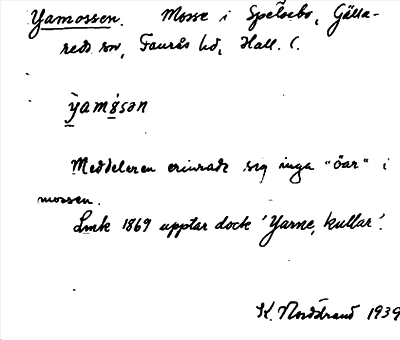 Yamossen. Mosse i Spetsebo, Gälla-
reds sn, Faurås hd, Hall. l.
ỳamǿsən
Meddelaren erinrade sig inga "öar" i
mossen.
Lmk 1869 upptar dock 'Yarne, kullar'.
K. Nordstrand 1939